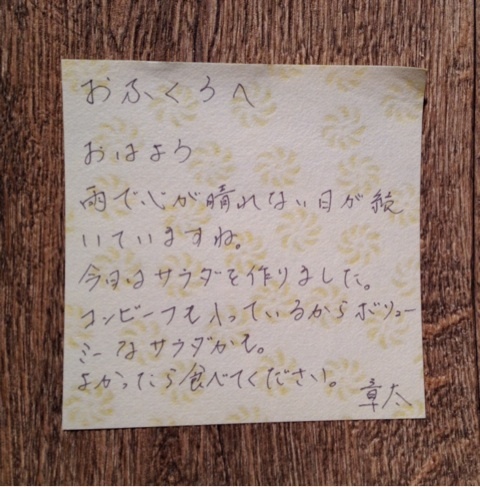 おふくろへ
おはよう
雨で心が晴れない日が続
いていますね。
今日はサラダを作りました。
コンビーフも入っているからボリュー
ミーなサラダかも。
よかったら食べてください。
章太